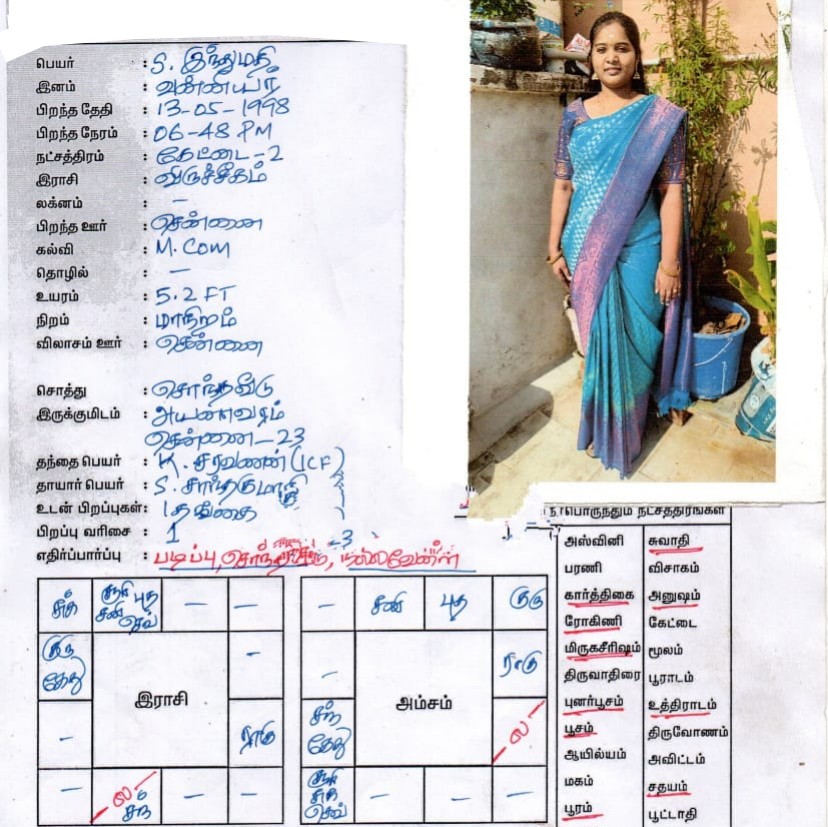 பெயர் : S. இந்துமதி
இனம் : வன்னியர்
பிறந்த தேதி : 13-05-1998
பிறந்த நேரம் : 06-48 PM
நட்சத்திரம் : கேட்டை -2
இராசி : விருச்சீகம்
லக்னம் : –
பிறந்த ஊர் : சென்னை
கல்வி : M. COM
தொழில் : –
உயரம் : 5.2 FT
நிறம் : மாநிறம்
விலாசம் ஊர் : சென்னை
சொத்து : சொந்தவீடு
இருக்குமிடம் : அயனாவரம்
சென்னை – 23
தந்தை பெயர் : K. சரவணன் (ICF)
தாயார் பெயர் : S. சாந்தகுமாரி
உடன் பிறப்புகள் : 1 தங்கை
பிறப்பு வரிசை : 1 -3
எதிர்ப்பார்ப்பு : படிப்பு,
பொருந்தும் நட்சத்திரங்கள்
அஸ்வினி சுவாதி
பரணி விசாகம்
கார்த்திகை அனுஷம்
ரோகிணி கேட்டை
மிருகசீரிஷம் மூலம்
திருவாதிரை பூராடம்
புனர்பூசம் உத்திராடம்
பூசம் திருவோணம்
ஆயில்யம் அவிட்டம்
மகம் சதயம்
பூரம் பூட்டாதி
– –
குரு
கேது
–
இராசி
–
ராகு
–
ல
– –
– சனி புத குரு
–
ராகு
அம்சம்
கேது
ல
– – –